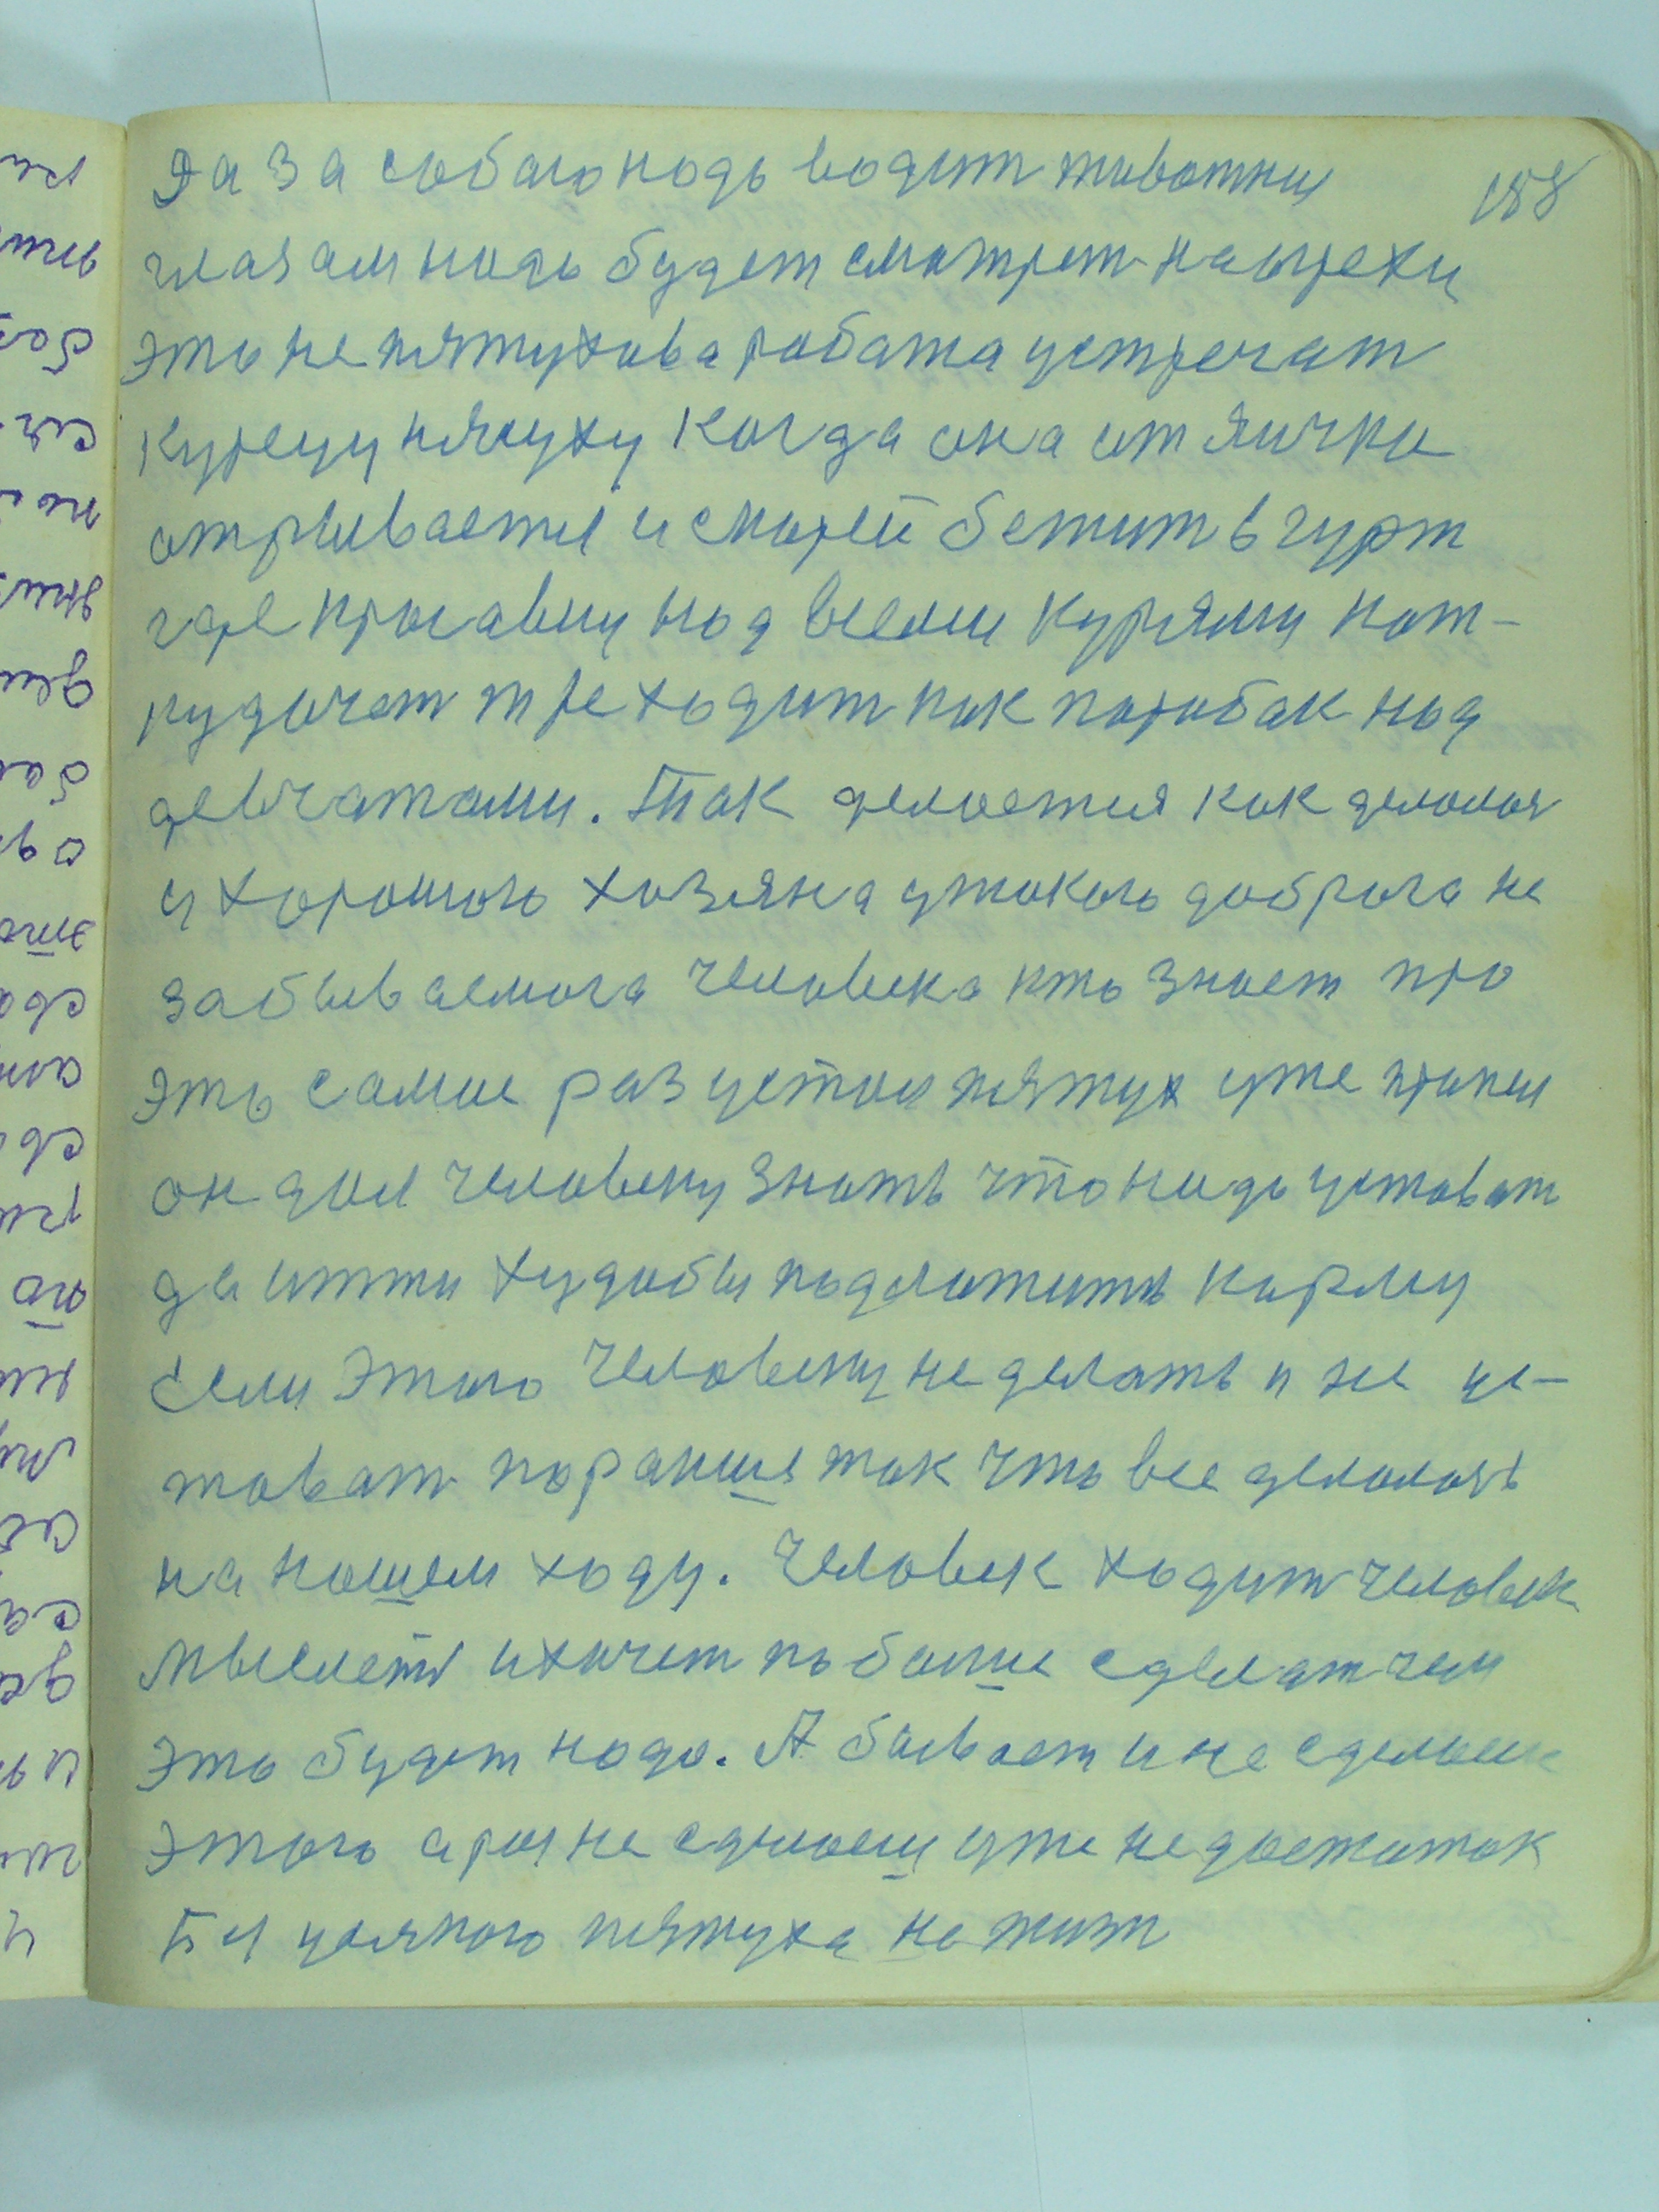 188
да за собаю надо водит животних
глазам надо будет сматрет на грехи
это не пятухова работа устречат
курецу нясуху когда она от яички
отрывается и скорей бежит в гурт
где красавцу над всеми курями кат-
кудачет тре ходит как парабак над
девчатами. Так делается как делалося
у хорошого хозяяна у такого доброга не
забываемога человека кто знает про
это самое раз устал пятух уже пропел
он дал человеку знать что надо устават
да итти худобы подложить корму
Если этого человеку не делать и не ус-
товат пораньше так что все делалось
на нашем ходу. Человек ходит человек
мыслеть и хочет побальше сделат чем
это будет надо. А бывает и не сделаеш
этого а раз не сделаеш уже недостаток
Без усякого пятуха не жит